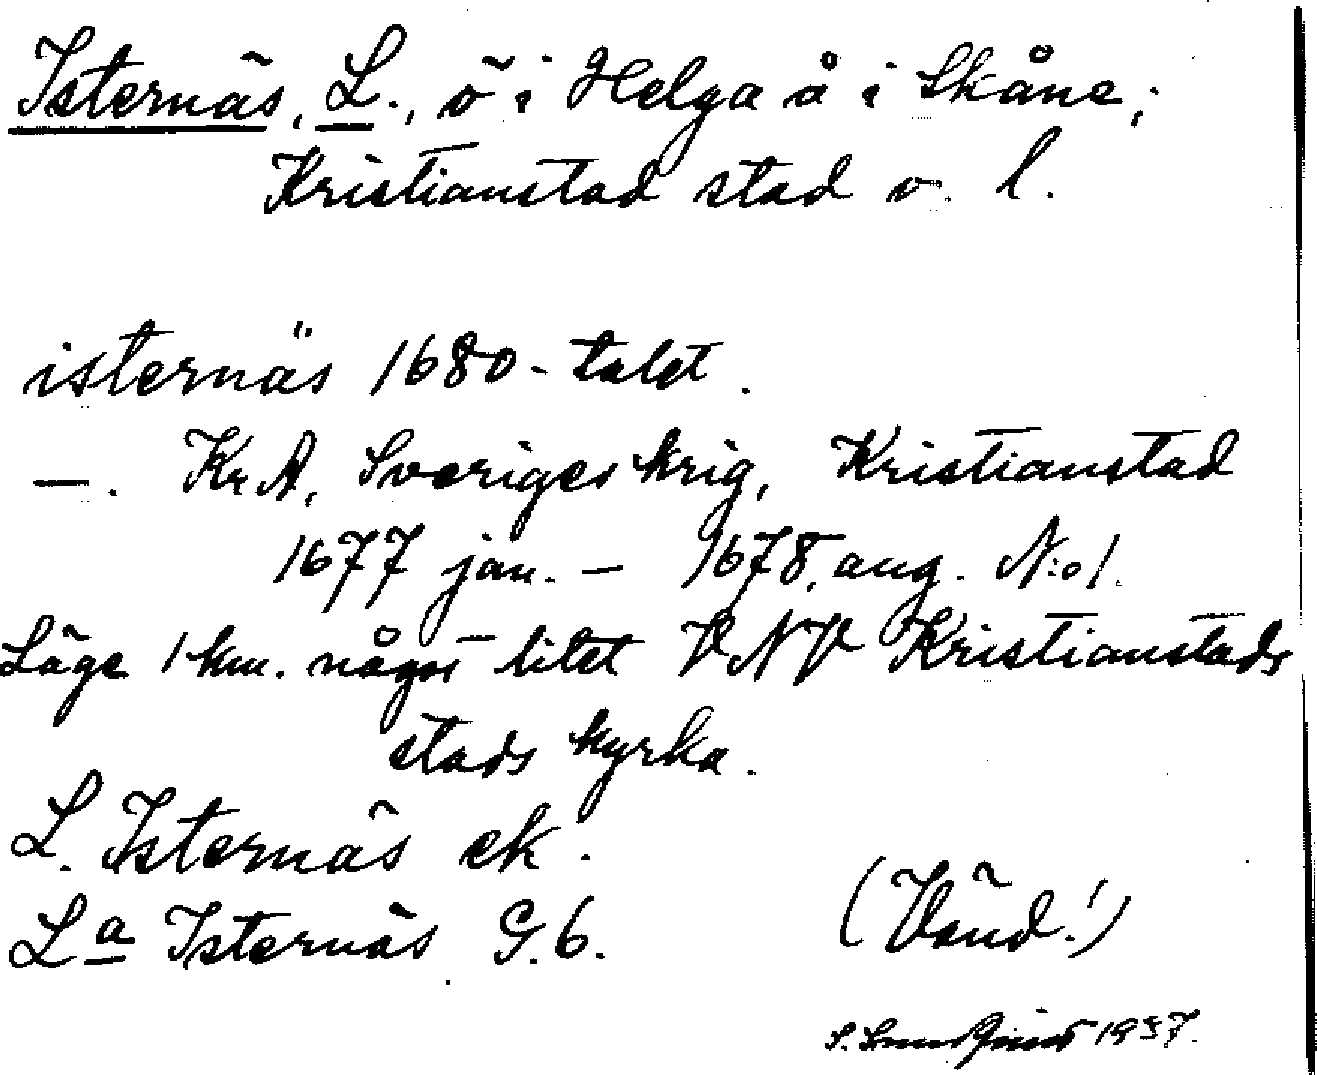 Isternäs, L., ö i Helga å i Skåne;
Kristianstad stad o. l.
isternäs 1680-talet.
—. KrA, Sveriges krig, Kristianstad
1677 jan. — 1678, aug. N:o 1.
Läge 1 km. något litet VNV Kristianstads
stads kyrka.
L. Isternäs ek.
La Isternäs G. 6.
(Vänd!)
S. 1937.